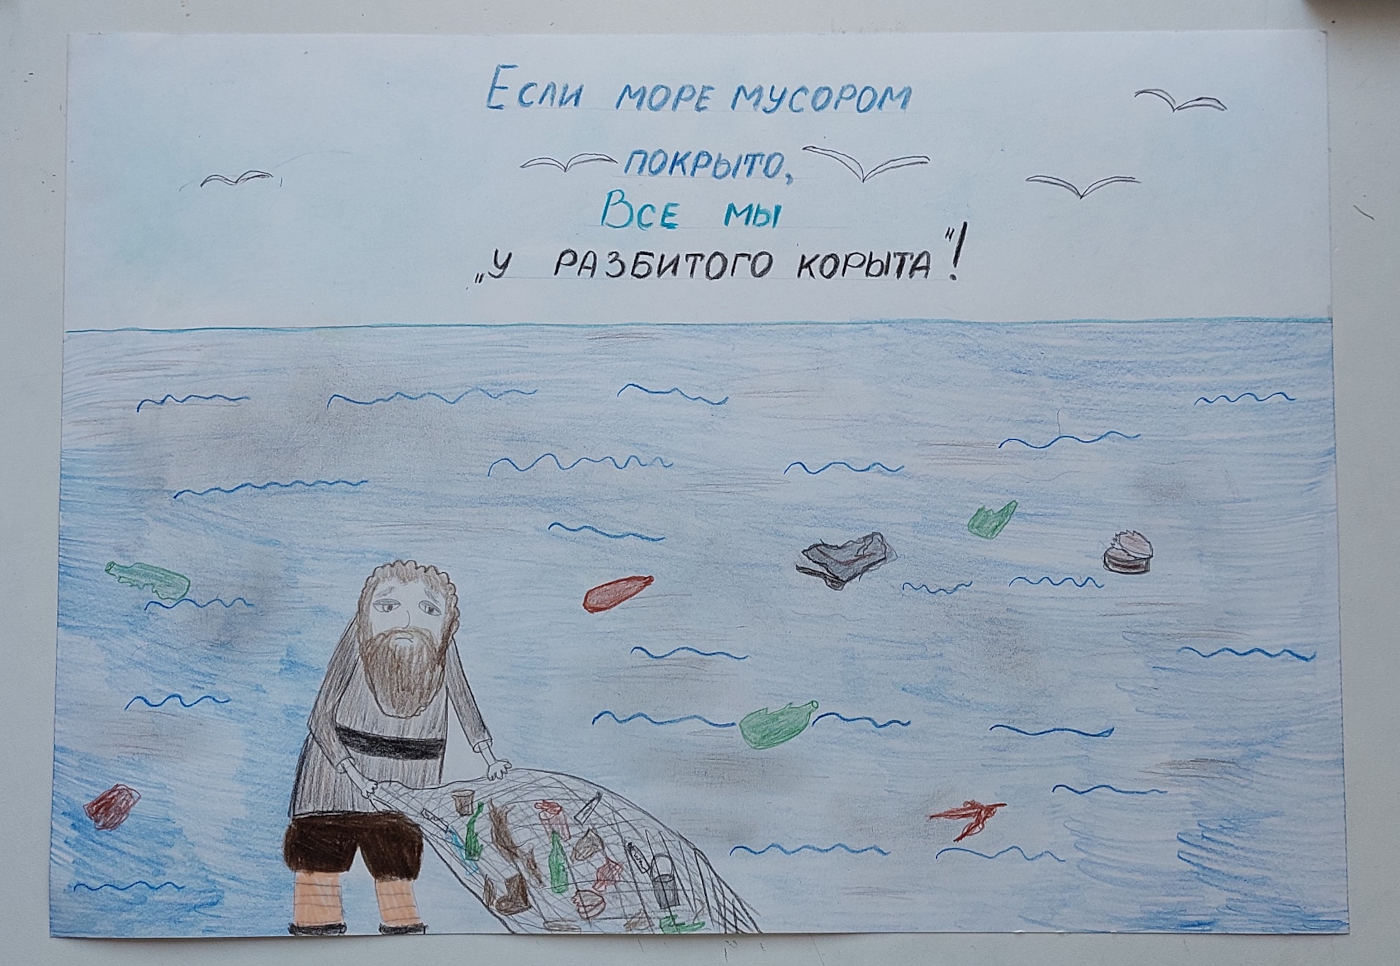 Если море мусором
покрыто,
Все мы
„у разбитого корыта"!